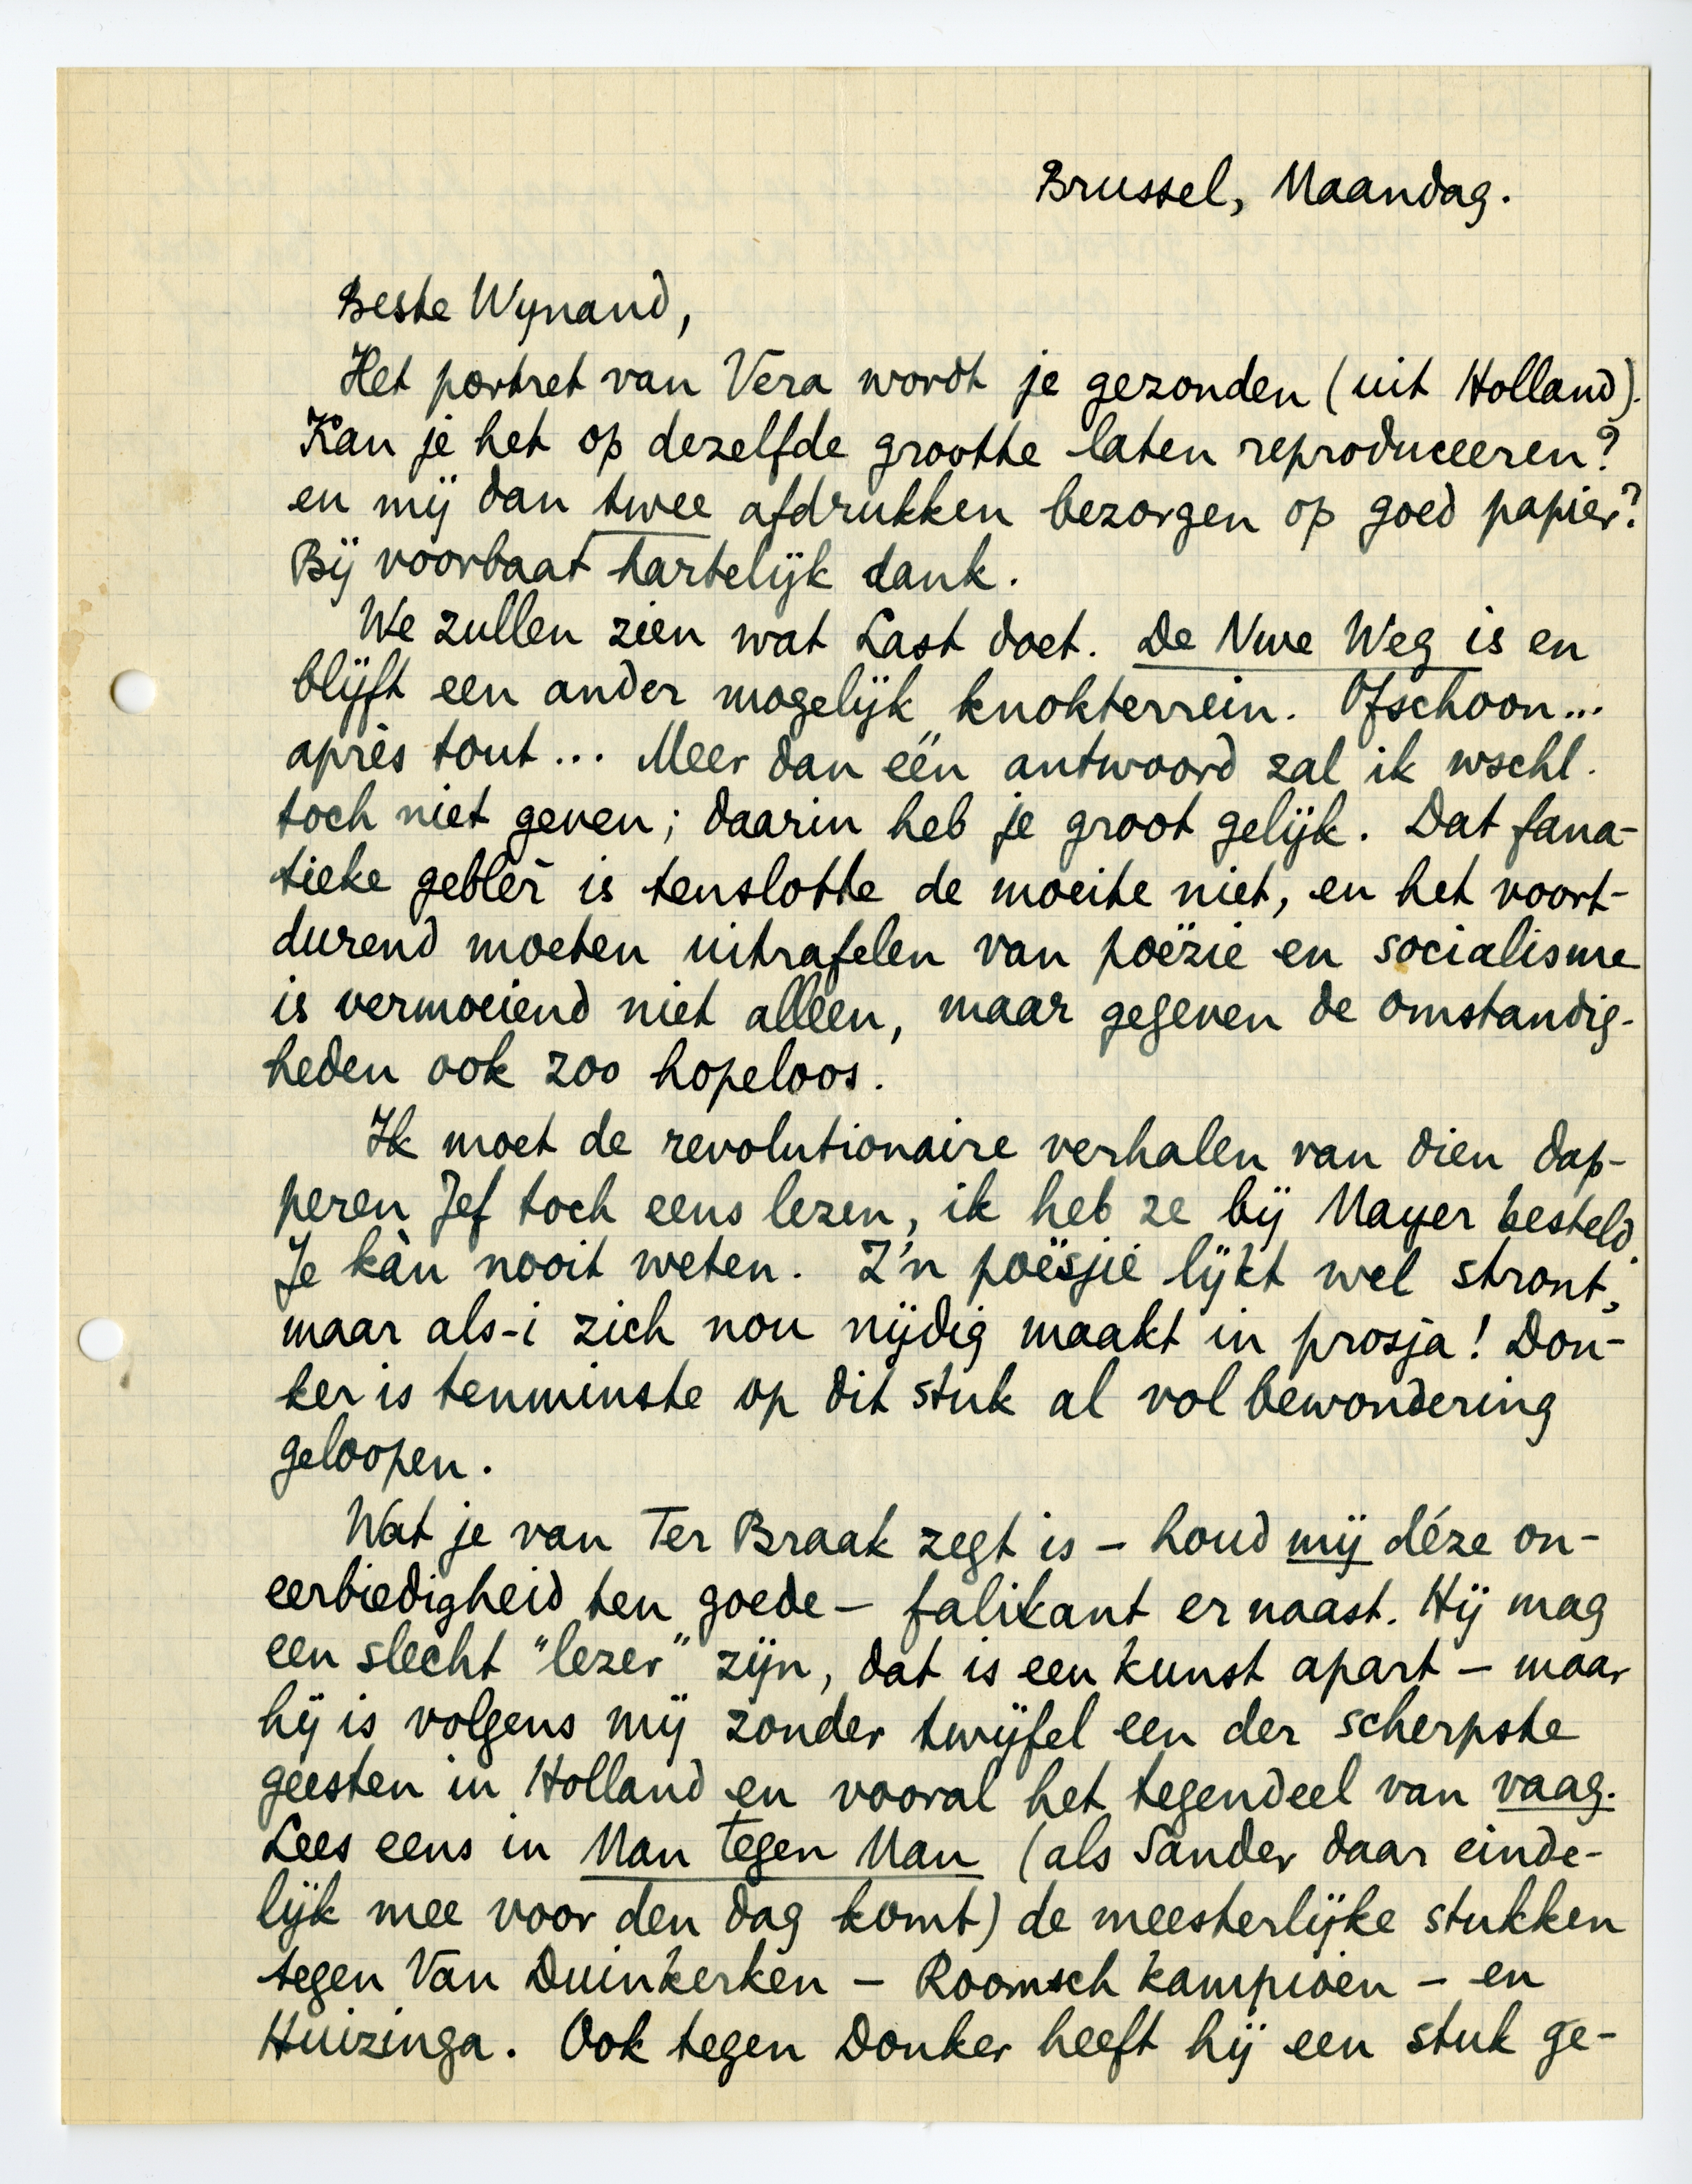 Brussel, Maandag.
Beste Wynand,
Het portret van Vera wordt je gezonden (uit Holland).
Kan je het op dezelfde grootte laten reproduceeren?
en mij dan twee afdrukken bezorgen op goed papier?
Bij voorbaat hartelijk dank.
We zullen zien wat Last doet. De Nwe Weg is en
blijft een ander mogelijk knokterrein. Ofschoon...
après tout... Meer dan één antwoord zal ik wschl.
toch niet geven; daarin heb je groot gelijk. Dat fana-
tieke geblèr is tenslotte de moeite niet, en het voort-
durend moeten uitrafelen van poëzie en socialisme
is vermoeiend niet alleen, maar gegeven de omstandig-
heden ook zoo hopeloos.
Ik moet de revolutionaire verhalen van dien dap-
peren Jef toch eens lezen, ik heb ze bij Mayer besteld.
Je kàn nooit weten. Z'n poësjië lijkt wel stront,
maar als-i zich nou nijdig maakt in prosja! Don-
ker is tenminste op dit stuk al vol bewondering
geloopen.
Wat je van Ter Braak zegt is – houd mij déze on-
eerbiedigheid ten goede – falikant er naast. Hij mag
een slecht "lezer" zijn, dat is een kunst apart – maar
hij is volgens mij zonder twijfel een der scherpste
geesten in Holland en vooral het tegendeel van vaag.
Lees eens in Man tegen Man (als Sander daar einde-
lijk mee voor den dag komt) de meesterlijke stukken
tegen Van Duinkerken – Roomsch kampioen – en
Huizinga. Ook tegen Donker heeft hij een stuk ge-